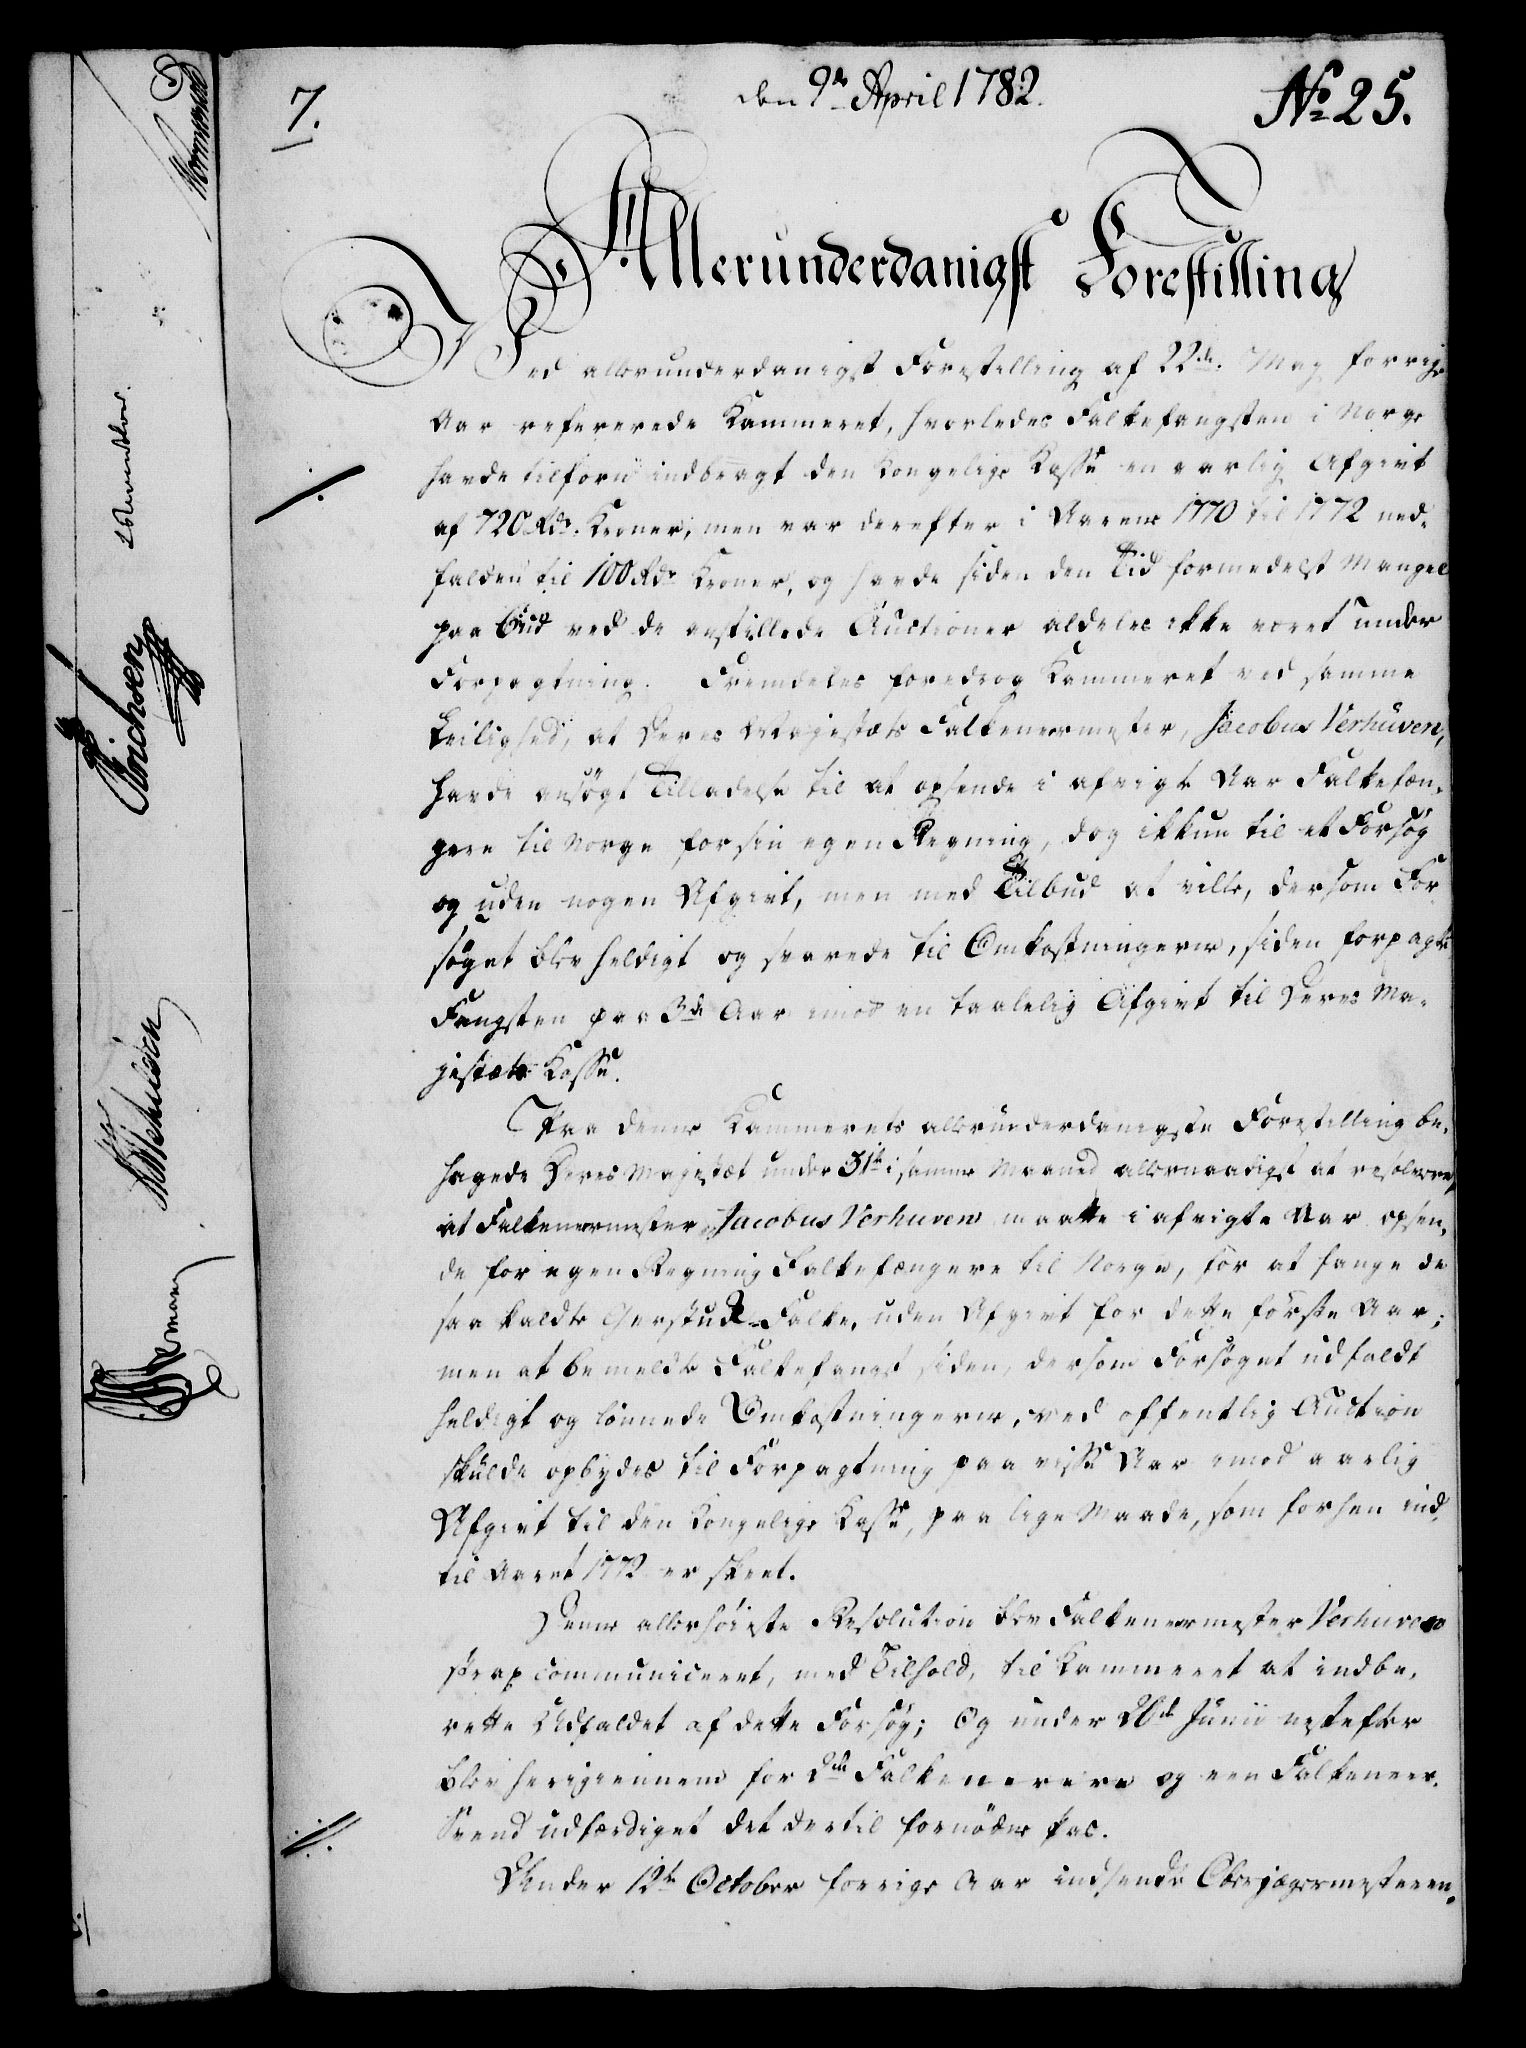 7.
den 9de April 1782.
No 25.
Allerunderdanigst Forestilling
Ved allerunderdanigst Forestilling af 22de May forrige
Aar refererede Kammeret, hvorledes Falkefangsten i Norge
havde tilforn indbragt den Kongelige Kasse en aarlig Afgivt
af 720 Rdr. Kroner, men var derefter i Aarene 1770 til 1772 ned-
falden til 100 Rdr Kroner, og havde siden den Tid formedelst Mangel
paa Bud ved de anstillede Auctioner aldeles ikke været under
Forpagtning. Fremdeles foredrog Kammeret ved samme
Leilighed, at Deres Majestæts Falkeneermester, Jacobus Verhuven,
havde ansøgt Tilladelse til at opsende i afvigte Aar Falkefæn-
gere til Norge for sin egen Regning, dog ikkun til et Forsøg
og uden nogen Afgivt, men med Tilbud at ville, dersom For-
søget blev heldigt og svarede til Omkostningerne, siden forpagte
Fangsten paa 3de Aar imod en taalelig Afgivt til Deres Ma-
jestæts Kasse.
Paa denne Kammerets allerunderdanigste Forestilling be-
hagede Deres Majestæt under 31te i samme Maaned allernaadigst at resolvere,
at Falkeneermester Jacobus Verhuven maatte i afvigte Aar opsen-
de for egen Regning Falkefængere til Norge, for at fange de
saa kaldte Falke, uden Afgivt for dette første Aar;
men at bemeldte Falkefangst siden, dersom Forsøget udfaldt
heldigt og lønnede Omkostningerne, ved offentlig Auction
skulde opbydes til Forpagtning paa visse Aar imod aarlig
Afgivt til den Kongelige Kasse, paa lige Maade, som forhen ind-
til Aaret 1772 er skeet.
Denne allerhøieste Resolution blev Falkeneermester Verhuven
strax communiceret, med Tilhold, til Kammeret at indbe-
rette Udfaldet af dette Forsøg; Og under 26de Junii nestefter
blev herigiennem for 2de Falkenerere og een Falkeneer-
Svend udfærdiget det dertil fornødne Pas.
Under 12te October forrige Aar indsendte Oberjægermesteren,
Erichsen